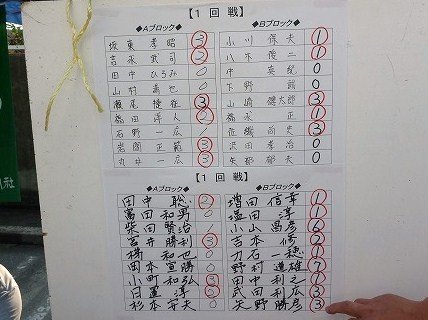 【1 回 戦】
◆Aブロック◆ ◆Bブロック◆
坂東 孝昭 3 小川 保夫 1
吉永 武司 2 八木 俊二 1
田中 ひろみ 0 中 英紀 0
山村 嘉也 0 下野 誠 0
瀬尾 捷征 3 山崎 健太郎 3
福田 洋人 2 福永 正 1
石野 一広 1 佐機 尚史 3
岩間 正範 3 沢田 孝治 0
丸井 一広 3 矢部 郁夫 0
【1 回 戦】
◆Aブロック◆ ◆Bブロック◆
田中 聡 2 増田 信幸 1
富田 和男 0 塩田 淳 1
柴田 賢治 1 小山 昌彦 6
宮井 勝利 3 吉本 修 2
梯 和也 0 刀石 一穂 1
岡本 宣勝 0 野村 道雄 7
小町 和弘 3 田中 利之 1
日置 淳 2 武田 利広 2
杉本 守夫 0 天野 勝彦 3